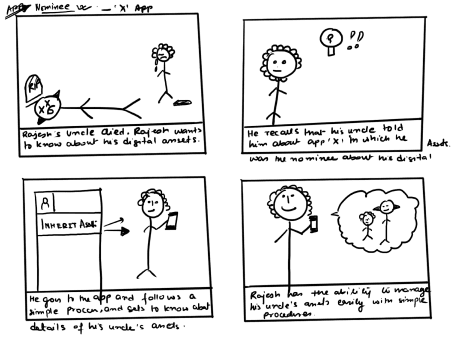 Nominee 'X' App
RIP
Rajesh's uncle died. Rajesh wants
to know about his digital assets.
?
He recalls that his uncle told
him about app 'X' in which he
was the nominee about his digital
Assets.
INHERIT
He goes to the app and follows a
simple process, and gets to know about
details of his uncle's assets.
Rajesh has the ability to manage
his uncle's assets easily with simple
procedures.